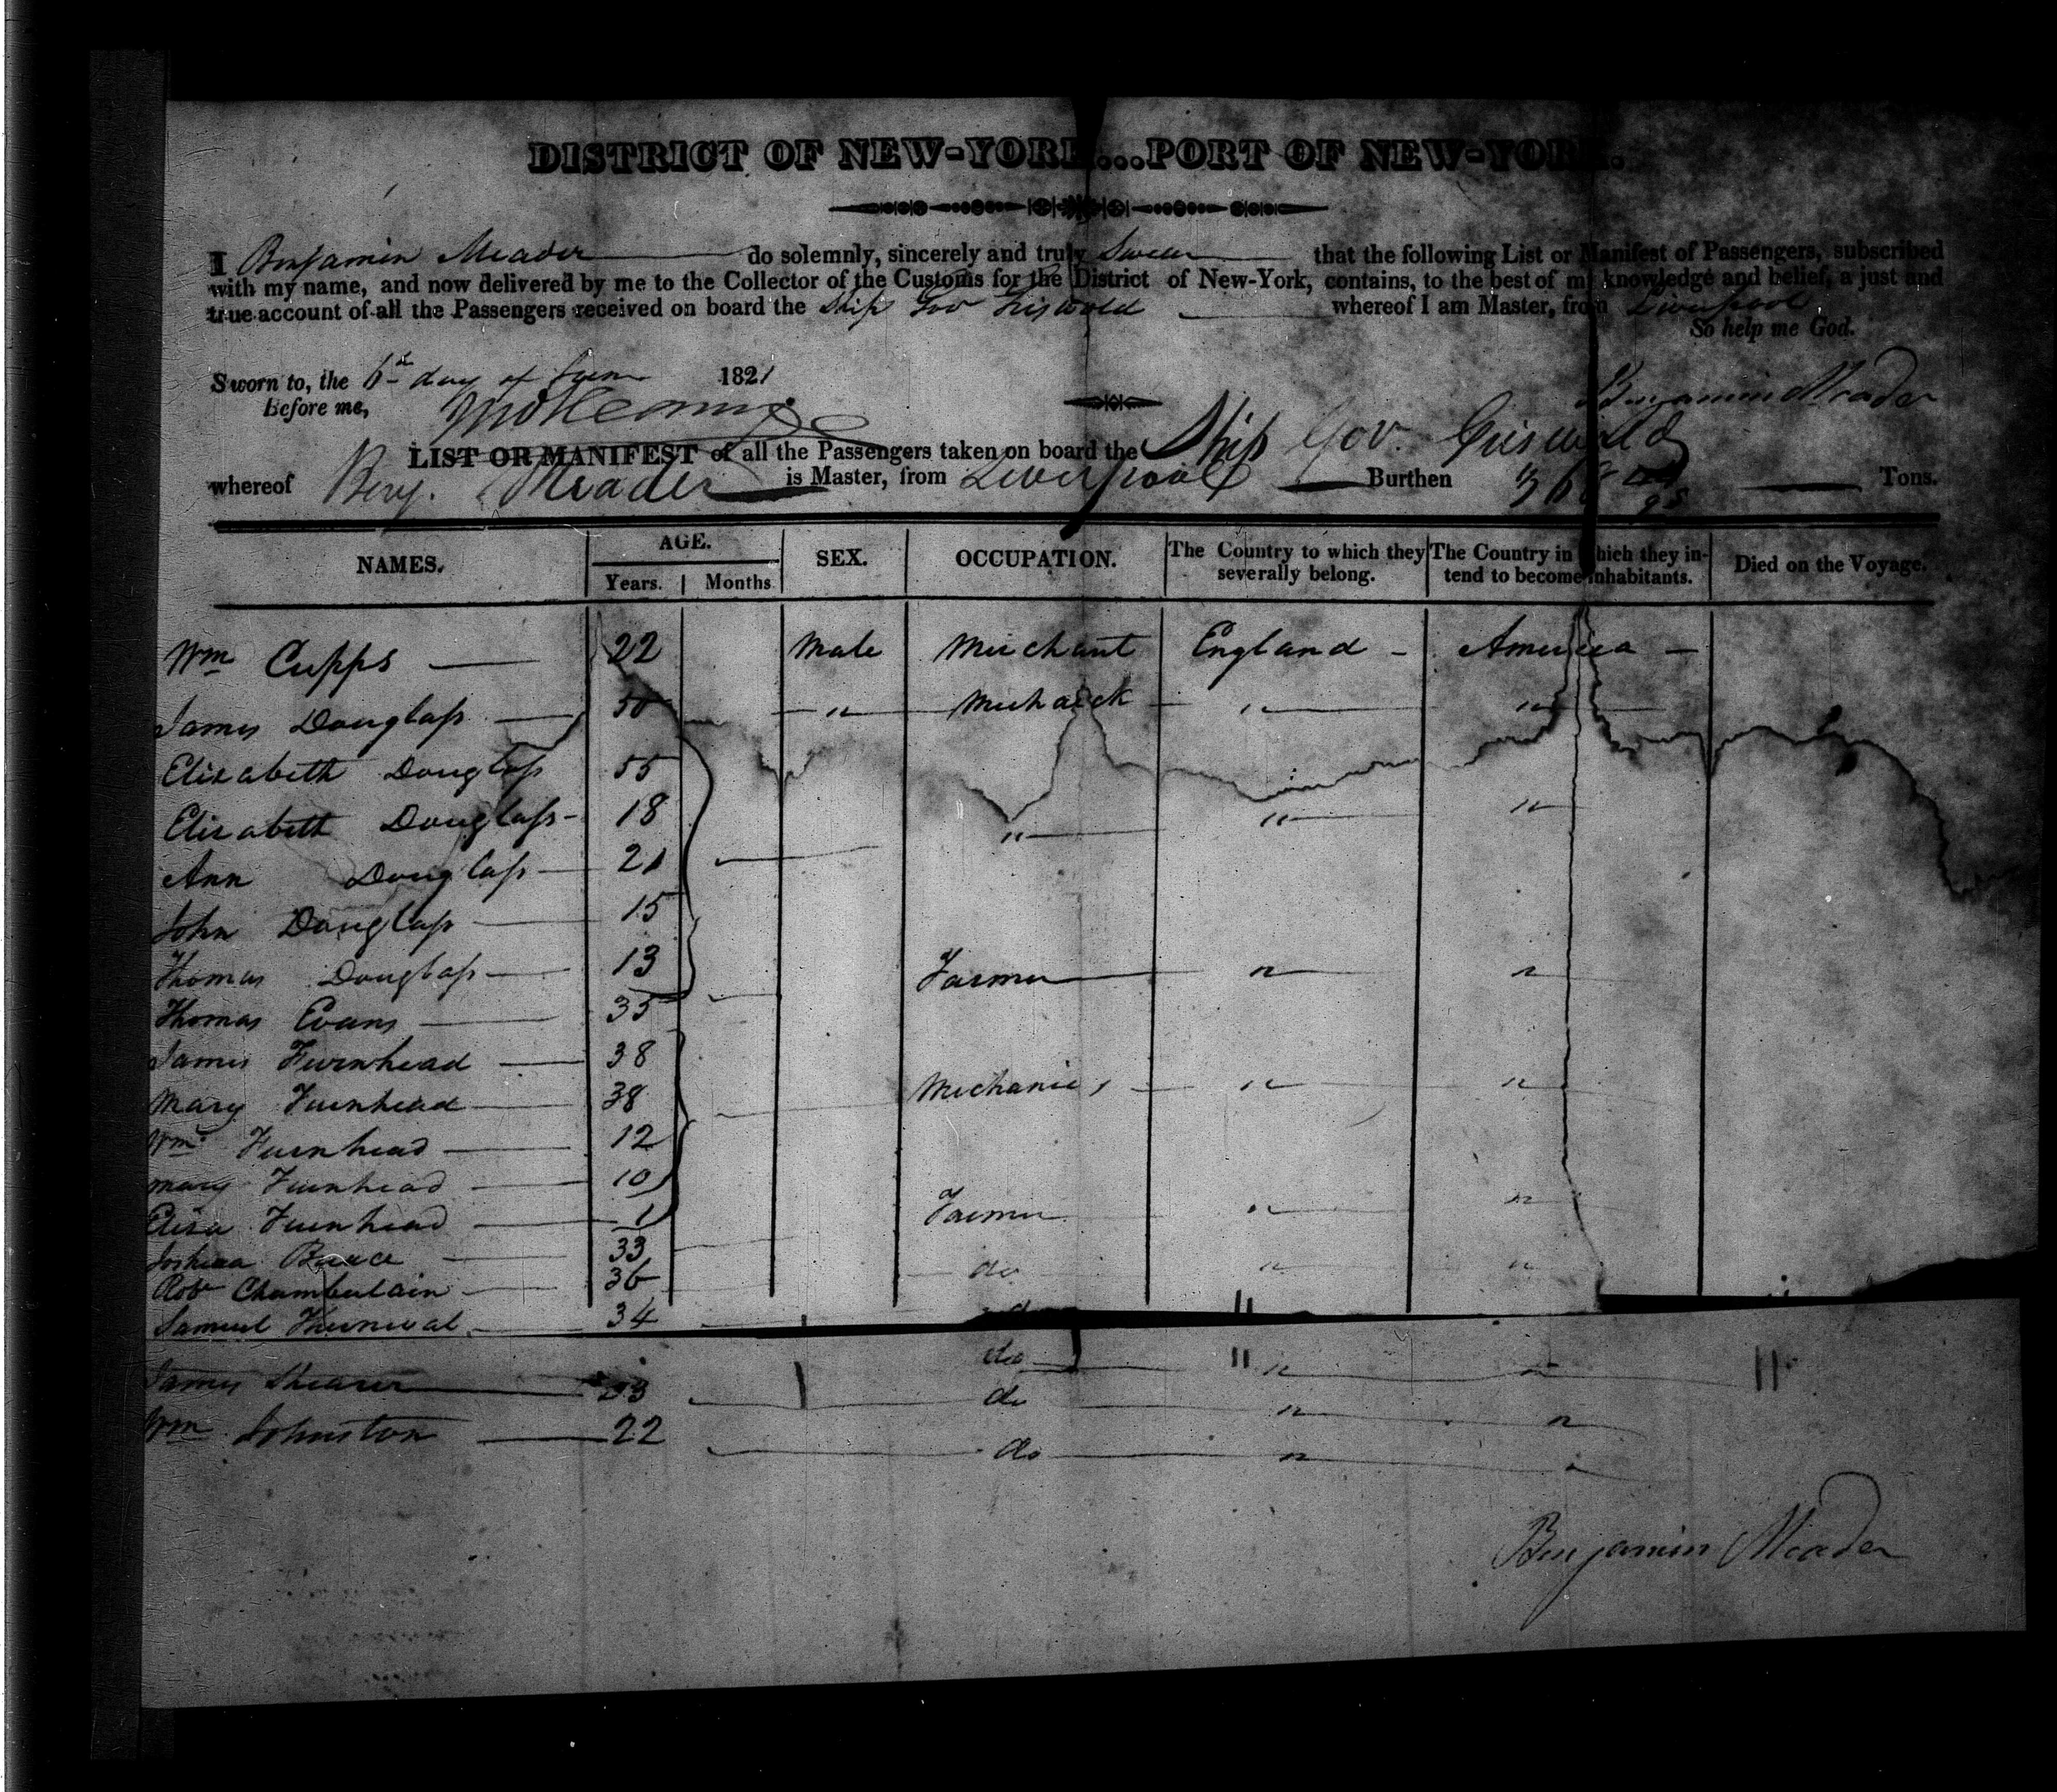 DISTRICT OF NEW-YORK...PORT OF NEW-YORK.
I Benjamin Meader do solemnly, sincerely and truly Swear that the following List or Manifest of Passengers, subscribed
with my name, and now delivered by me to the Collector of the Customs for the District of New-York, contains, to the best of my knowledge and belief, a just and
true account of all the Passengers received on board the Ship Gov Griswold whereof I am Master, from Liverpool
So help me God.
Sworn to, the 6th day of 1821
Benjamin Meader
Before me,
LIST OR MANIFEST of all the Passengers taken on board the Ship Gov. Griswold
whereof Benj. Meader is Master, from Liverpool Burthen 368 95 Tons.
NAMES. AGE. SEX. OCCUPATION. The Country to which they severally belong. The Country in which they intend to become inhabitants. Died on the Voyage.
Years. Months
Wm Cupps 22 Male Merchant England America
James Douglass 50 " "
Elizabeth Douglass 55
Elizabeth Douglass 18 " " "
Ann Douglass 21
John Douglass 15
Thomas Douglass 13 Farmer " "
Thomas Evans 35
James Furnhead 38
Mary Furnhead 38 Mechanic " "
Wm Furnhead 12
Mary Furnhead 10
Eliza Furnhead 1 Farmer " "
Joshua 33
Robt Chamberlain 36 do " "
Samuel 34
James Shearer 23 do " "
do " "
Wm Johnston 22 do "
Benjamin Meader